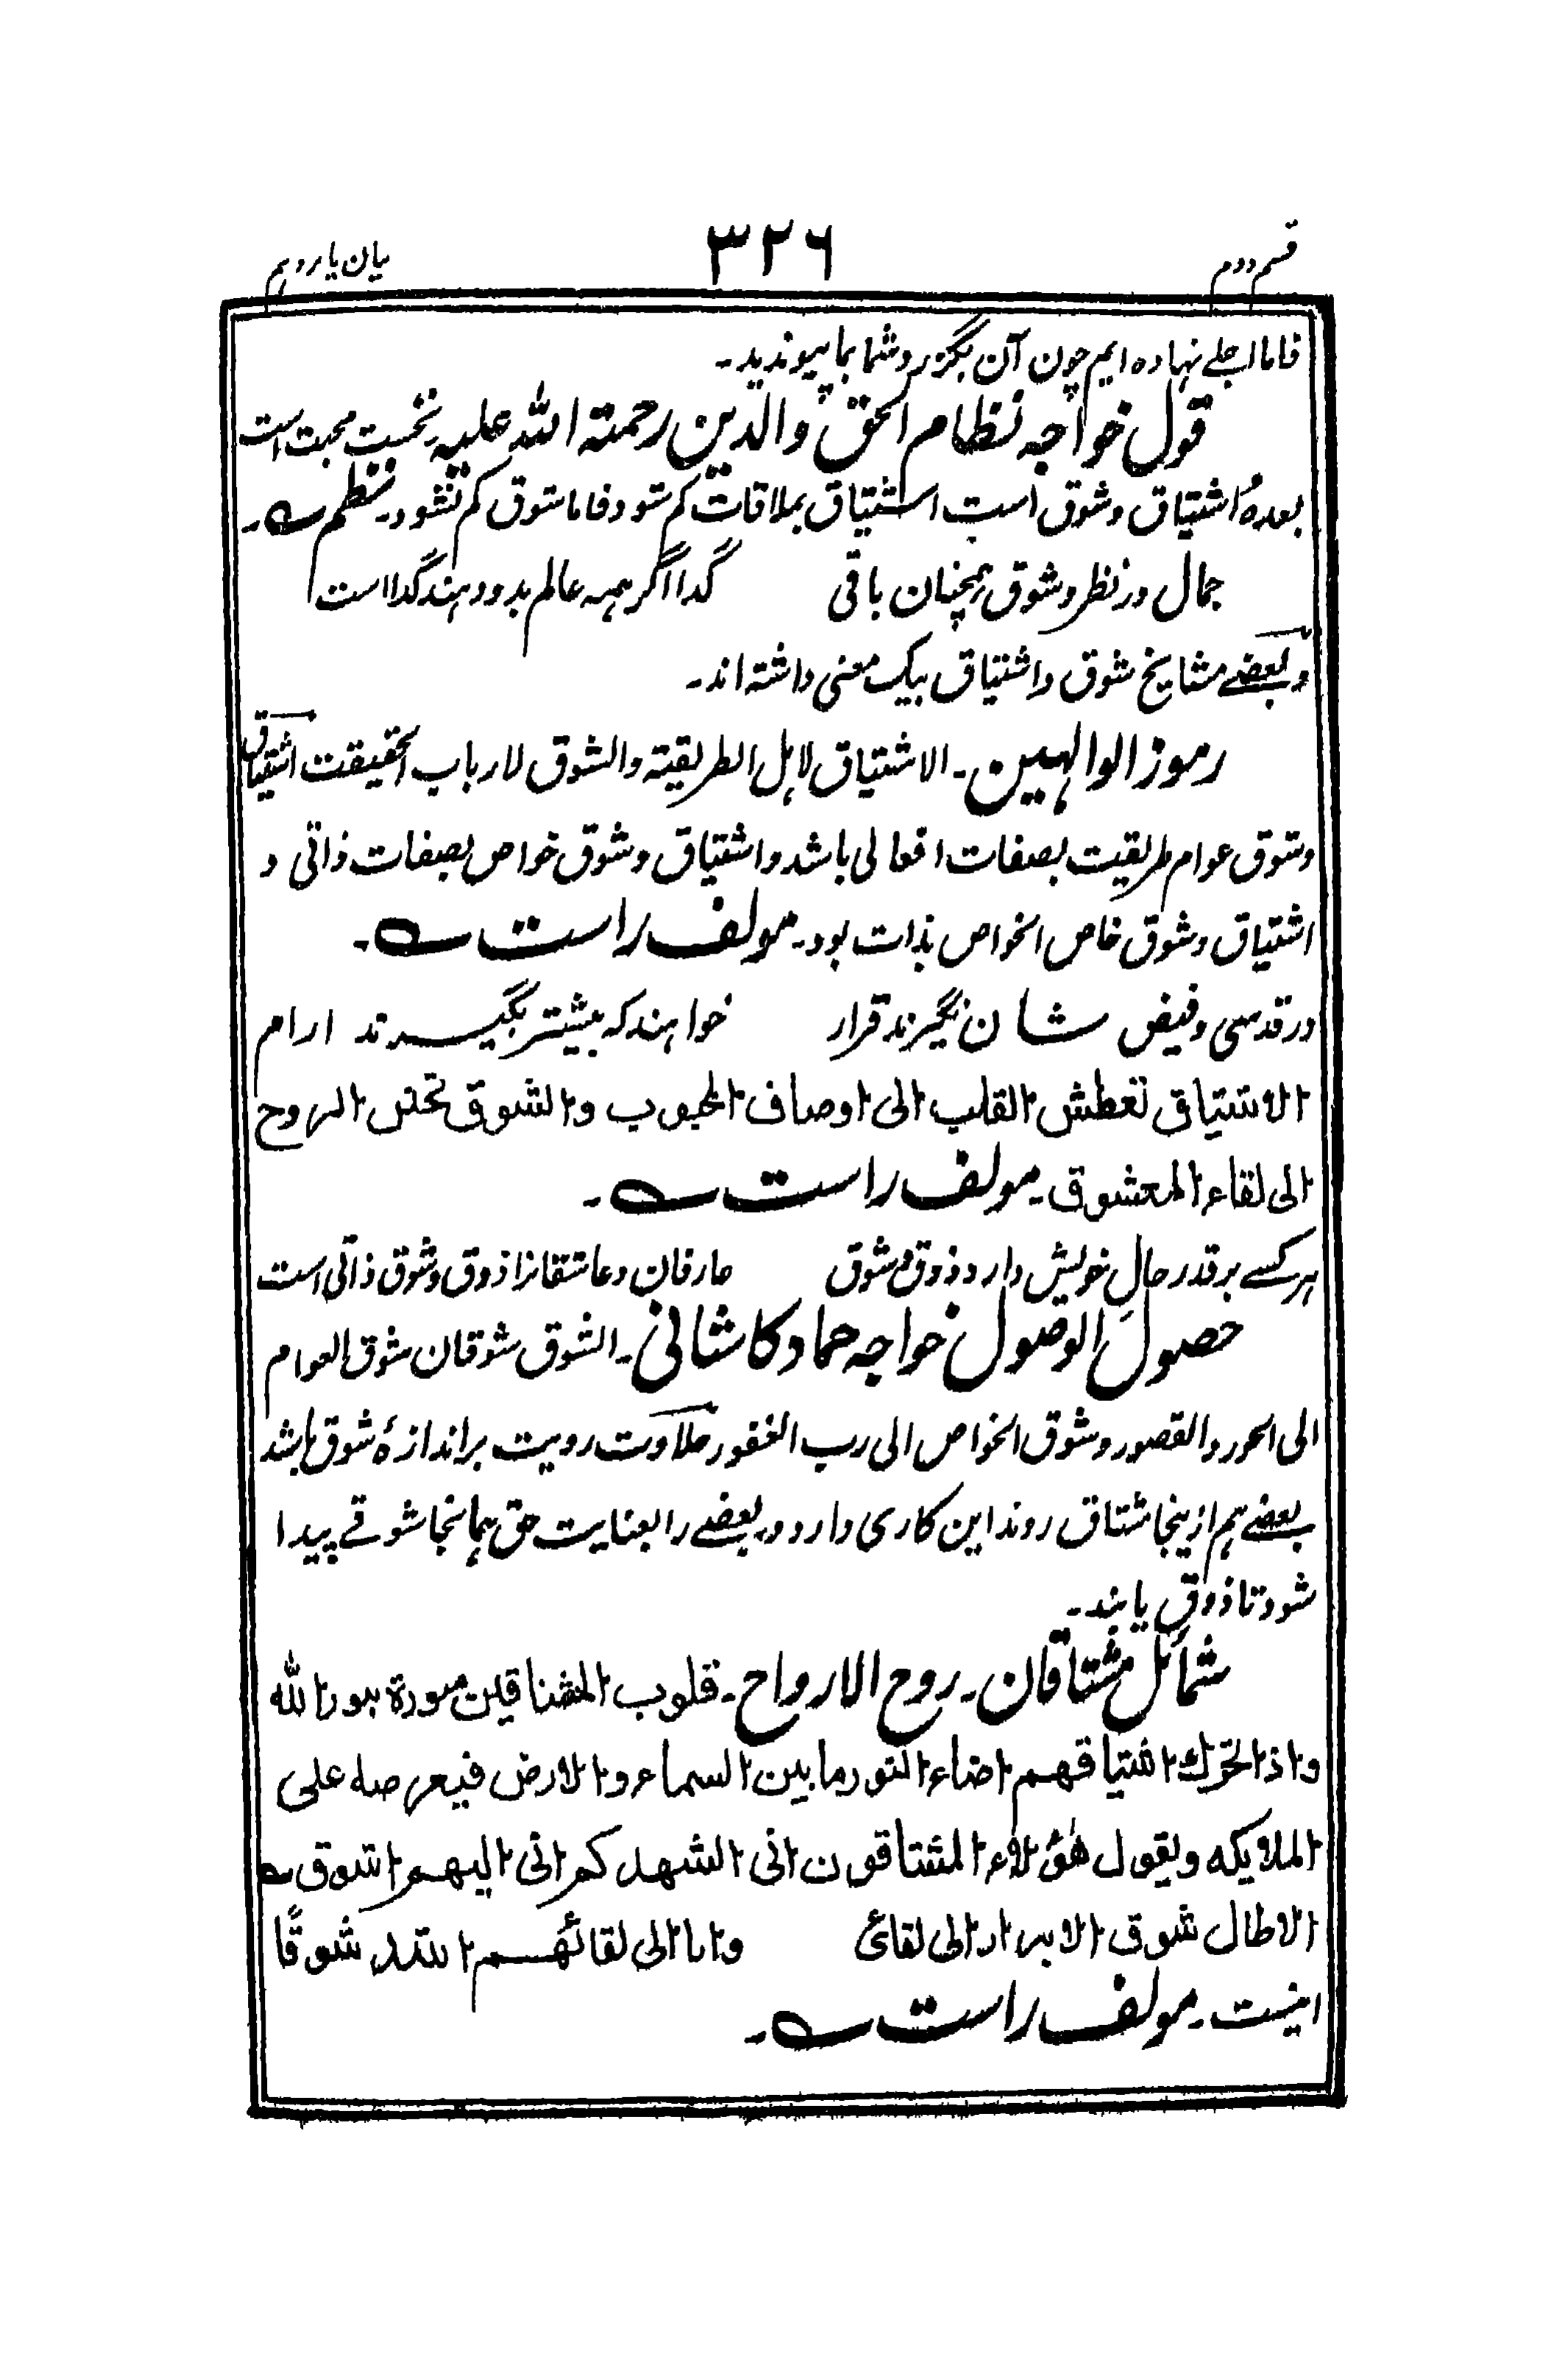 قسم دوم ۳۲۶ بیان یازدہم
فاما اجلے نہادہ ایم چون آن بگزرد شما بما پیوندید۔
قول خواجہ نظام الحق والدین رحمتہ اللہ علیہ۔ نخست محبت است
بعدہٗ اشتیاق و شوق است اشتیاق بملاقات کم شود فاما شوق کم نشود۔ نظم ؎۔
جمال در نظر و شوق ہمچنان باقی گدا اگر ہمہ عالم بدو دہند گدا است
و بعضے مشایخ شوق و اشتیاق بیک معنی داشتہ اند۔
رموز الوالہین۔ الاشتیاق لاہل الطریقتہ والشوق لارباب الحقیقت اشتیاق
و شوق عوام طریقیت بصفات افعالی باشد و اشتیاق و شوق خواص بصفات ذاتی و
اشتیاق و شوق خاص الخواص بذات بود۔ مولف راست ؎۔
در قدسی و فیض شان نگیرند قرار خواہند کہ بیشتر بگیرند ارام
الاشتیاق تعطش القلب الی اوصاف المحبوب والشوق تحنن الروح
الی لقاء المعشوق۔ مولف راست ؎۔
ہر کسے بر قدر حالِ خویش دارد ذوق و شوق عارفان و عاشقانرا ذوق و شوق ذاتی است
حصول الوصول خواجہ حماد کاشانی۔ الشوق شوقان شوق العوام
الی الحور والقصور و شوق الخواص الی رب الغفور حلاوت رویت بر اندازۂ شوق باشد
بعضے ہم ازینجا مشتاق روند این کاری دارد و بعضے را بعنایت حق ہمانجا شوقے پیدا
شود تا ذوق یابند۔
شمائل مشتاقان۔ روح الارواح۔ قلوب المشتاقین منورۃ بنور اللہ
واذا تحرک اشتیاقهم اضاء النور ما بین السماء والارض فیعرضه علی
الملایکه ویقول هٰؤلاء المشتاقون انی اشهدکم انی الیهم اشوق ؎
الا طال شوق الابرار الی لقائ وانا الی لقائهم اشد شوقًا
اینست۔ مولف راست ؎۔